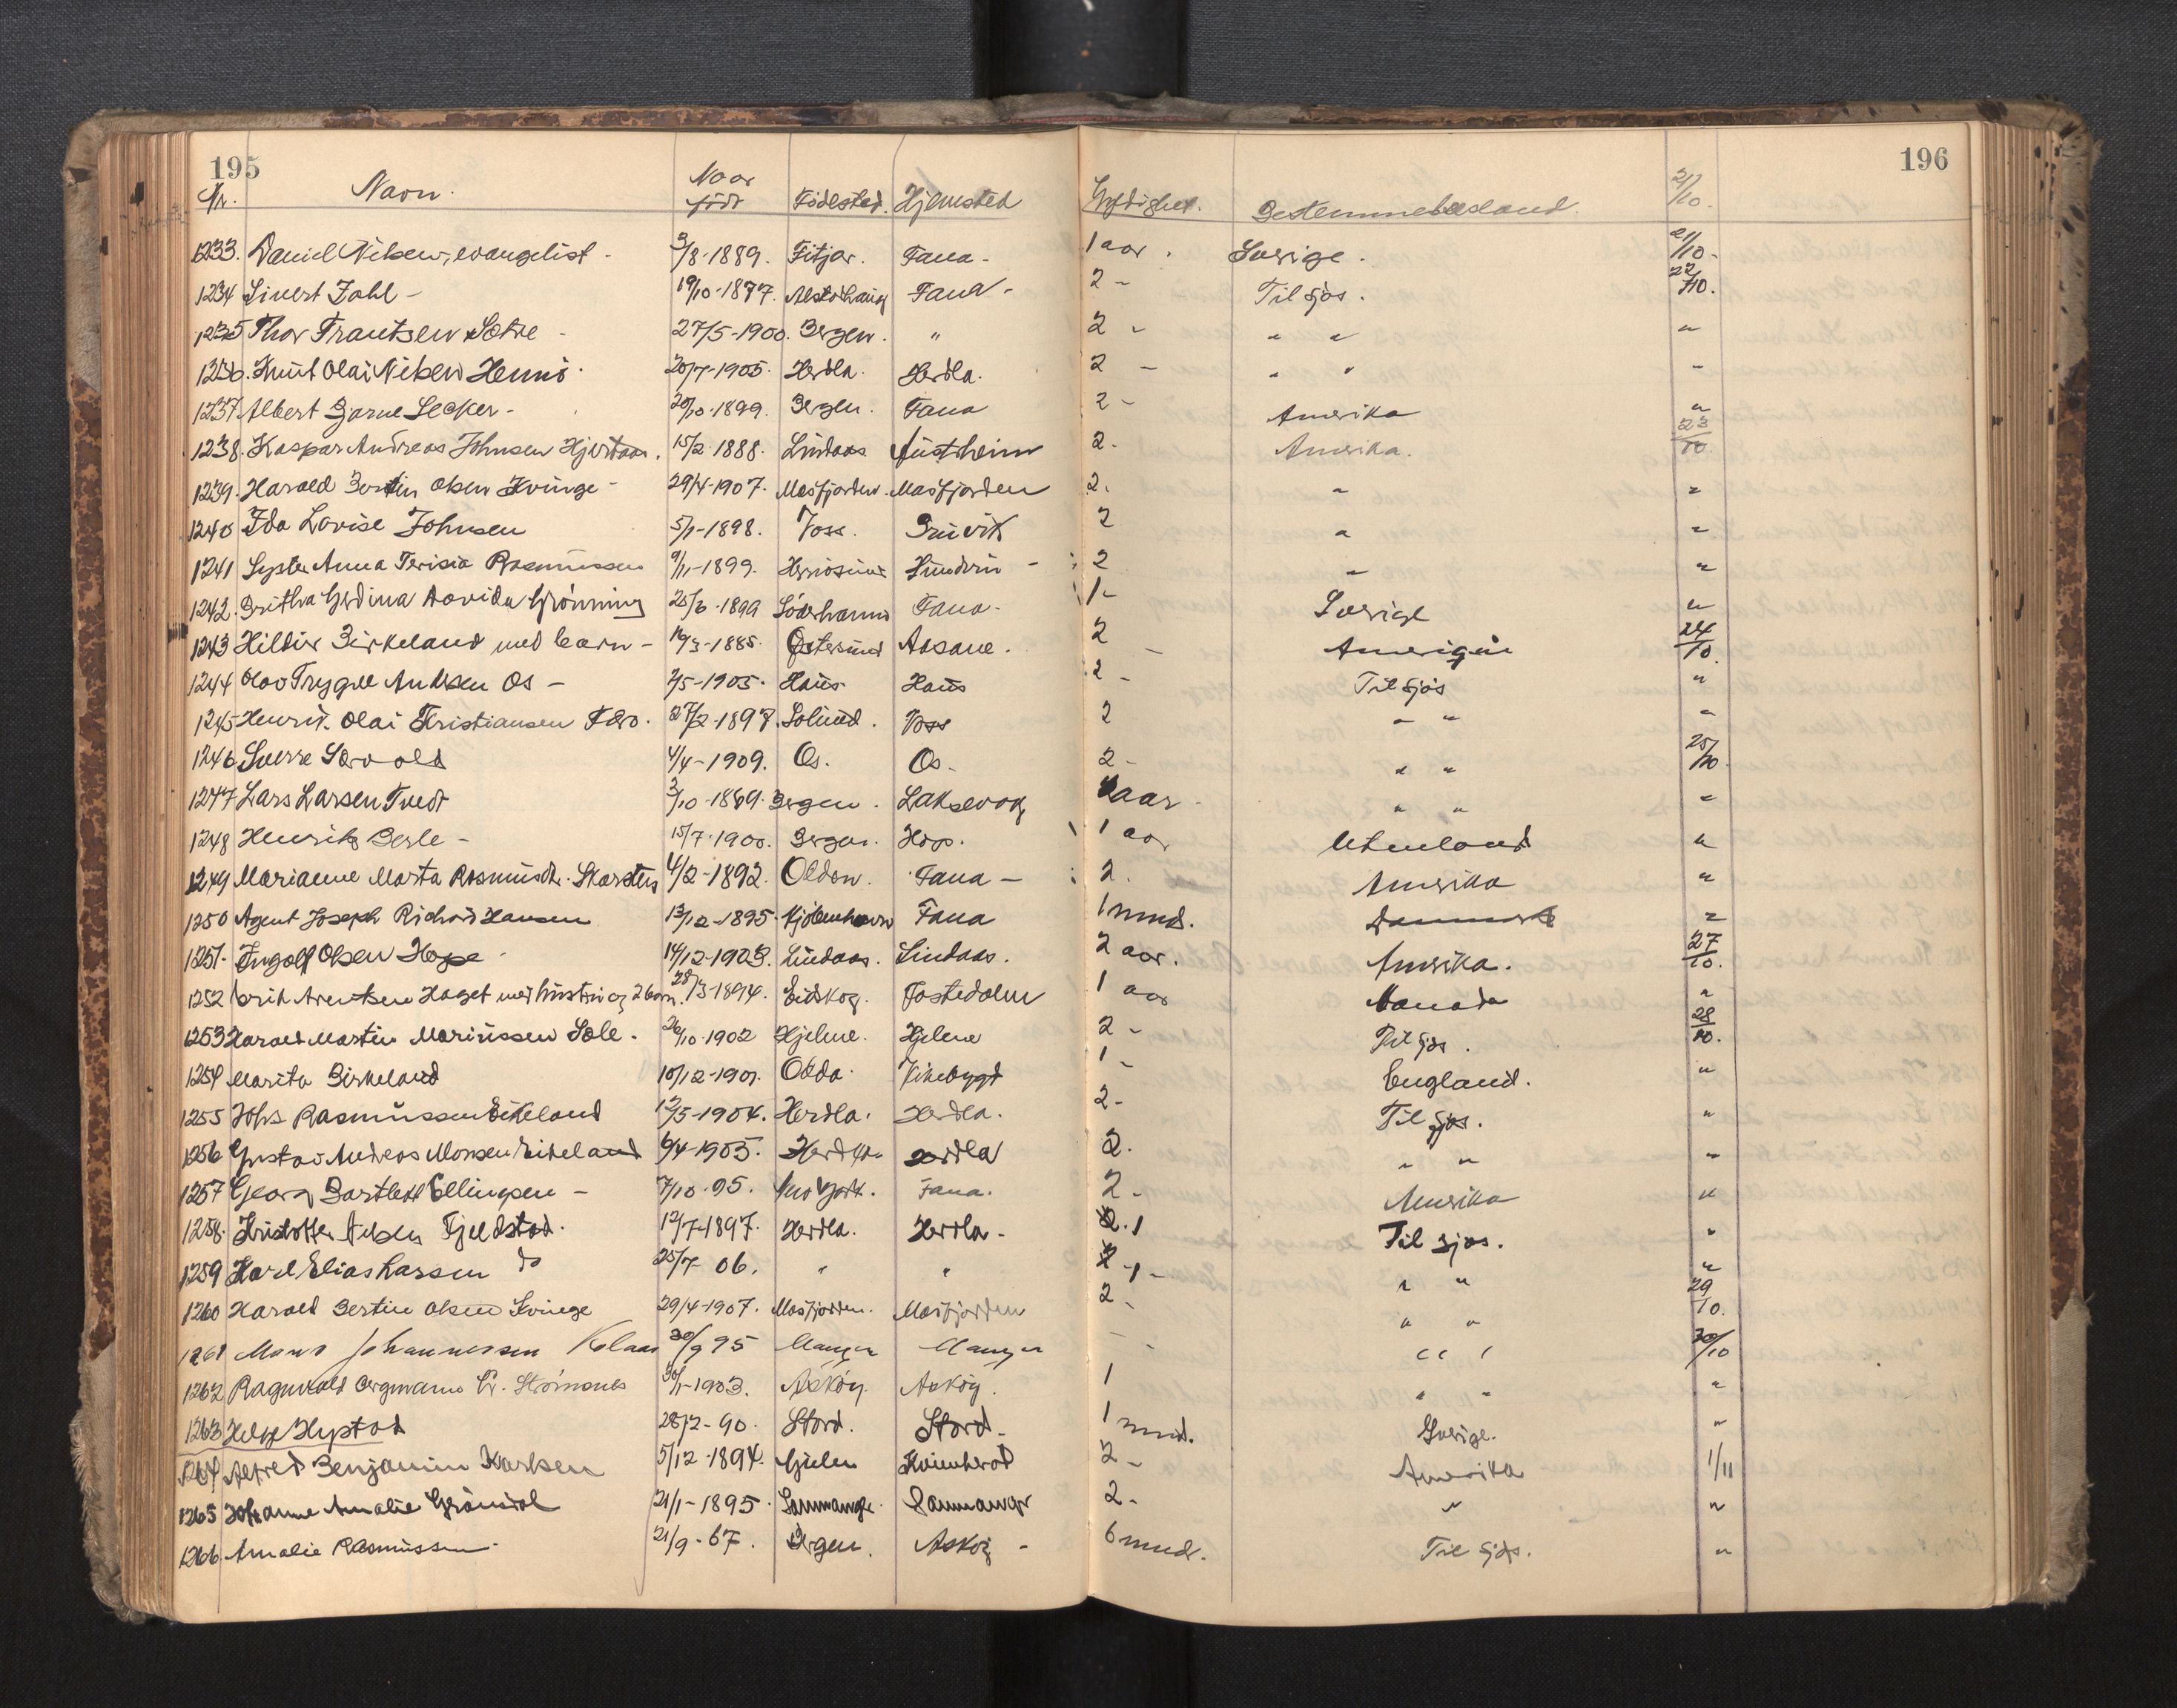 195 196
Nr. Navn. Naar født Fødested. Hjemsted Gyldighet. Bestemmelsesland. 21/10.
1233. Daniel Nilsen, evangelist - 3/8-1889. Fitjar. Fana - 1 aar. Sverige. 21/10.
1234 Sivert Dahl - 19/10-1877. Alstahaug Fana - 2 - Til sjøs. 22/10.
1235 Thor Frantsen Sætre - 27/5-1900. Bergen. " 2 - " " "
1236. Knut Olai Nilsen Hennø. 20/7-1905. Herdla. Herdla. 2 - " " -
1237 Albert Bjarne Lecker - 20/10-1899. Bergen. Fana 2 - Amerika "
1238. Kaspar Andreas Johnsen Hjertaas. 15/2-1888. Lindaas Austrheim 2. Amerika. 23/10.
1239. Harald Bertin Olsen Kvinge - 29/4-1907. Masfjorden. Masfjorden 2. " "
1240 Ida Lovise Johnsen 5/1-1898. Voss. 2 " "
1241 Anna Rasmussen 9/11-1899. 2 " "
1242. Gerdina Davida Grønning 25/6-1899 Söderhamn Fana. 1 - Sverige "
1243 Birkeland med barn - 16/3-1885. Östersund Aasane. 2 - 24/10.
1244 Olav Trygve Os - 2/5-1905. Haus Haus 2 - Til sjøs "
1245 Olai Kristiansen 27/2-1897. Solund. Voss 2 " " "
1246 Sverre Særvold 4/4-1909. Os. Os - 2 - " " 25/10
1247 Lars Larsen Tvedt 3/10-1869. Bergen. Laksevaag aar - " " "
1248 Henrik Berle - 15/7-1900. Bergen. Hop. 1 aar Utenland "
1249 Marianne Marta 4/2-1892. Olden. Fana - 2. Amerika "
1250 Agent Joseph Richard Hansen 13/12-1895. Kjöbenhavn Fana 1 mnd. Danmark "
1251. Ingolf Olsen Hope 14/12-1903. Lindaas. Lindaas. 2 aar. Amerika. 27/10.
1252 Arentsen Haget med hustru og 2 barn. 28/3-1894. Eidskog. 1 aar Canada "
1253 Harald Martin Mariussen Sæle. 26/10-1902 Hjelme. Hjelme 2 - Til sjøs. 28/10.
1254 Marita Birkeland 10/12-1901. Odda. Vikebygd 1 - England. "
1255 Johs Rasmussen Eikeland 12/5-1904. Herdla. Herdla. 2 - Til sjøs. "
1256 Gustav Andreas Monsen Eikeland 6/4-1905. Herdla. Herdla 2. " " "
1257 Georg Bartlett Ellingsen - 7/10-95. Fana. 2 - Amerika "
1258. Kristoffer Nilsen Fjeldstad. 12/7-1897. Herdla. Herdla - 1 Til sjøs. "
1259 Karl Elias Larssen do 25/7 06. " " 1 - " " "
1260 Harald Bertin Olsen Kvinge 29/4-1907. Masfjorden. Masfjorden 2 - " " 29/10.
1261 Mons Johannessen 30/9 95 Manger Manger - " " 30/10
1262 Ragnvald Strömsnes 30/1-1903. Askøy. Askøy. 1 " " "
1263 Helge Hystad 28/2-90. Stord. Stord - 1 mnd. Sverige. "
1264 Alfred Benjamin Karlsen 5/12-1894. Gulen Kvinnherad 2 - Amerika 1/11
1265 Johanne Amalie Grønsdal 21/1-1895. Samnanger. Samnanger 2 - " "
1266 Amalie Rasmussen. 21/9-67. Bergen. Askøy - 6 mndr. Til sjøs. "